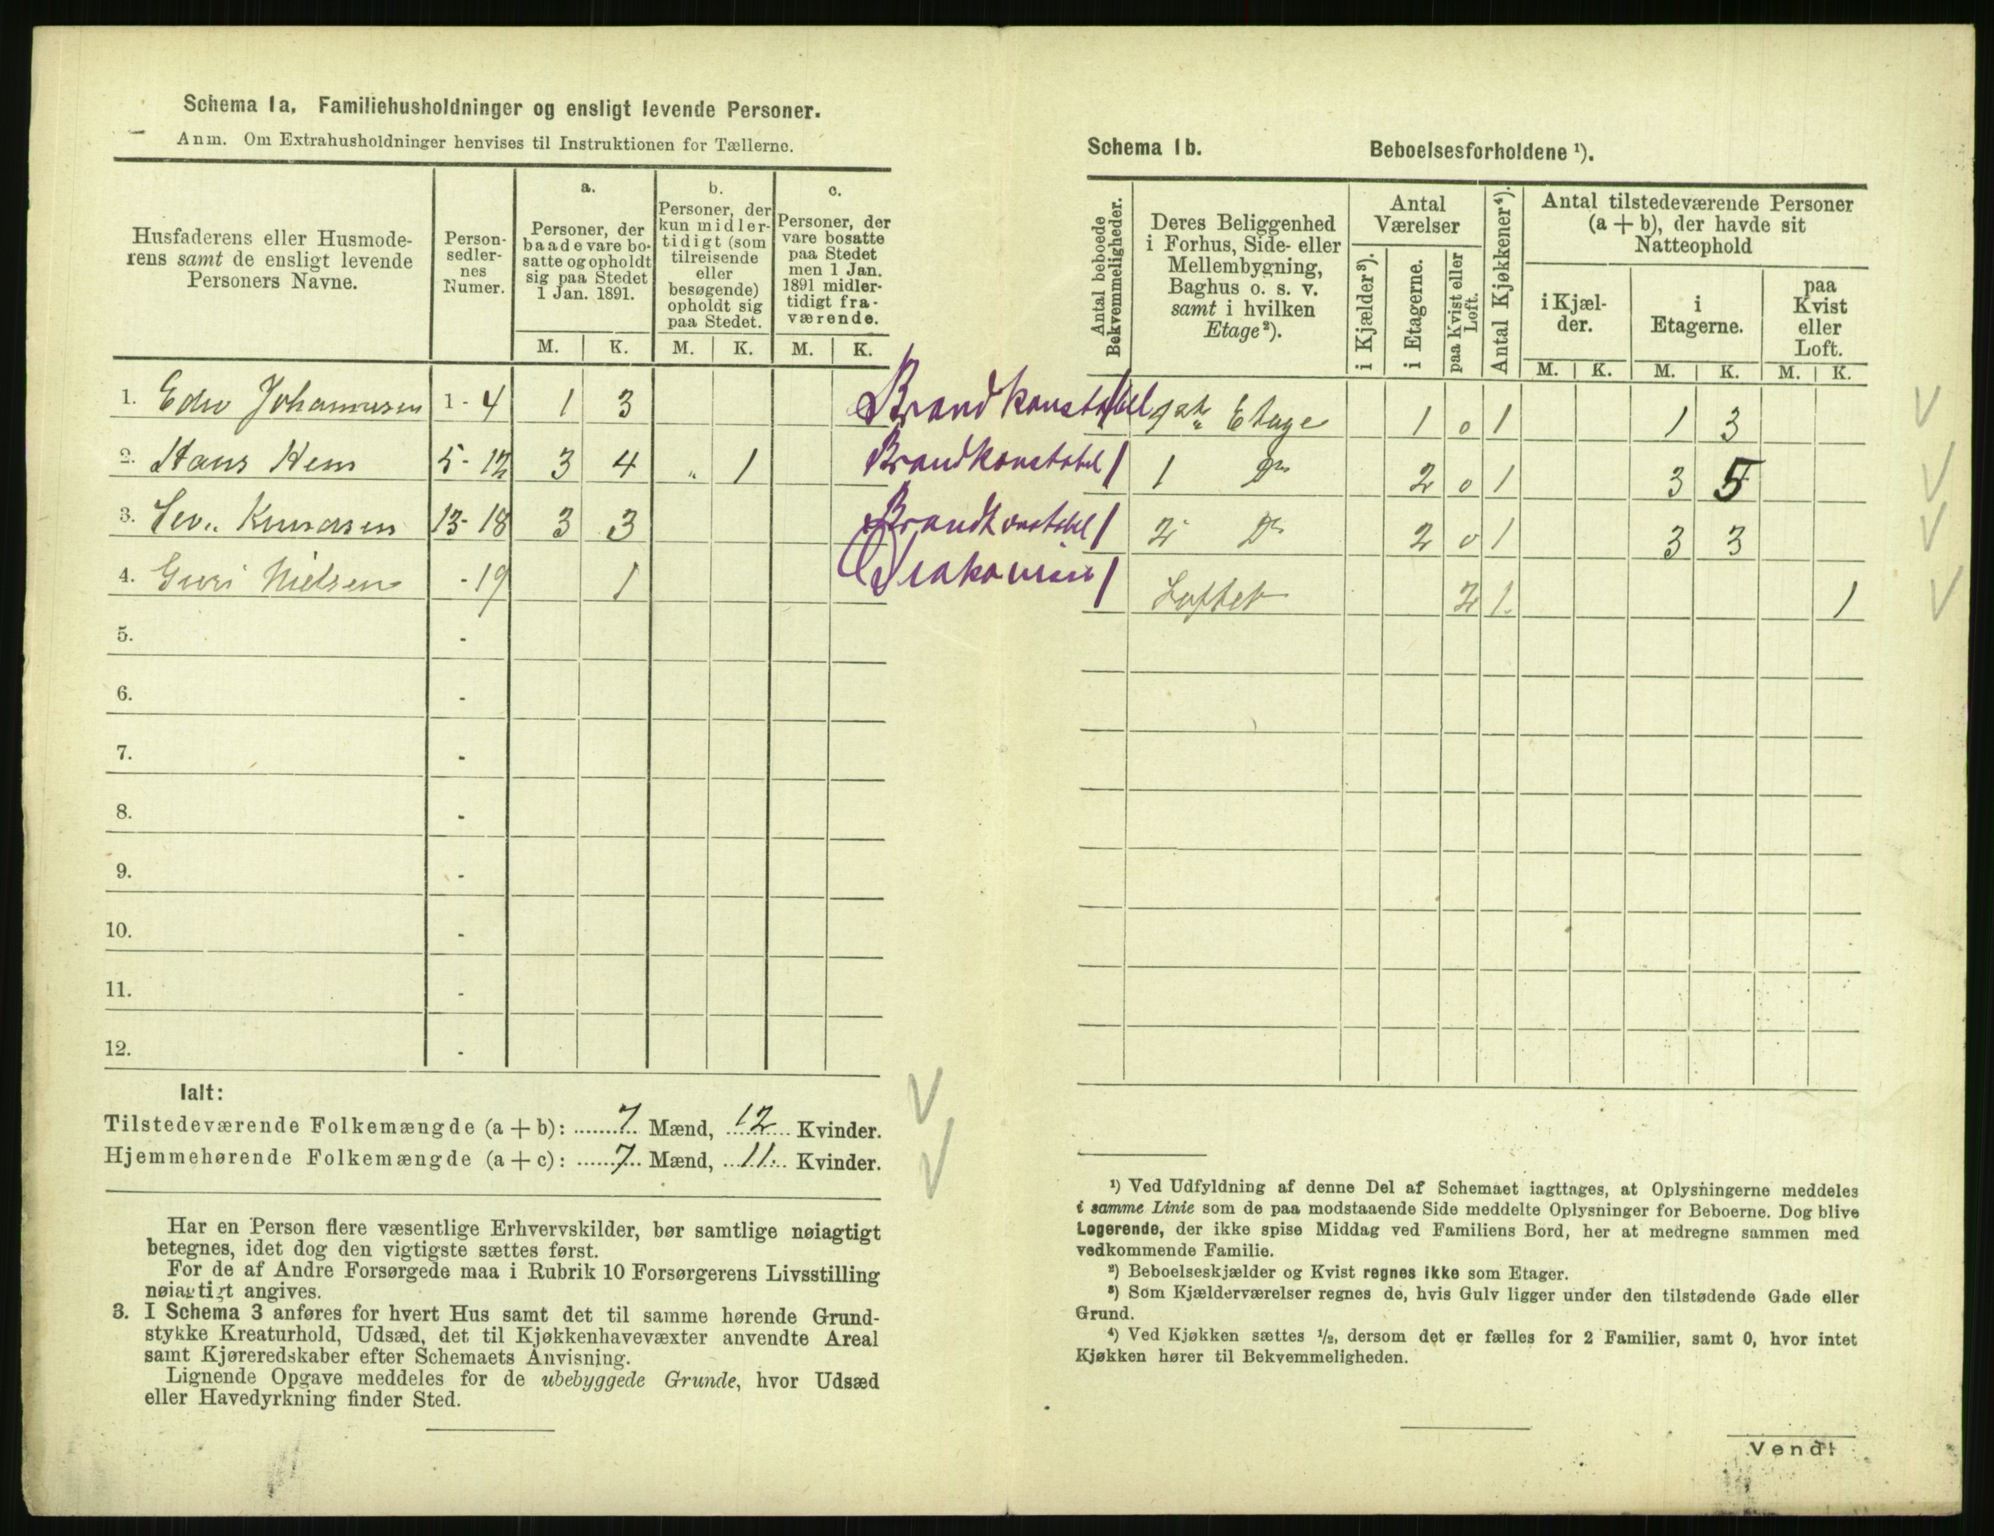 Schema 1a. Familiehusholdninger og ensligt levende Personer.
Anm. Om Extrahusholdninger henvises til Instruktionen for Tællerne.
Husfaderens eller Husmode-
rens samt de ensligt levende
Personers Navne.
Person-
sedler-
nes
Numer.
a.
Personer, der
baade vare bo-
satte og opholdt
sig paa Stedet
1 Jan. 1891.
b.
Personer, der
kun midler-
tidigt (som
tilreisende
eller
besøgende)
opholdt sig
paa Stedet.
c.
Personer, der
vare bosatte
paa Stedet
men 1 Jan.
1891 midler-
tidigt fra-
værende.
M. K. M. K. M. K.
1. Edw Johannesen 1 - 4 1 3 Brandkonstabel
2. Hans Hem 5 - 12 3 4 „ 1 Brandkonstabel
3. Knudsen 13 - 18 3 3 Brandkonstabel
4. Guri Nielsen - 19 1
5. -
6. -
7. -
8. -
9. -
10. -
11. -
12. -
Ialt:
Tilstedeværende Folkemængde (a + b): 7 Mænd, 12 Kvinder.
Hjemmehørende Folkemængde (a + c): 7 Mænd, 11 Kvinder.
Har en Person flere væsentlige Erhvervskilder, bør samtlige nøiagtigt
betegnes, idet dog den vigtigste sættes først.
For de af Andre Forsørgede maa i Rubrik 10 Forsørgerens Livsstilling
nøiagtigt angives.
3. I Schema 3 anføres for hvert Hus samt det til samme hørende Grund-
stykke Kreaturhold, Udsæd, det til Kjøkkenhavevæxter anvendte Areal
samt Kjøreredskaber efter Schemaets Anvisning.
Lignende Opgave meddeles for de ubebyggede Grunde, hvor Udsæd
eller Havedyrkning finder Sted.
Schema 1b. Beboelsesforholdene ¹).
Antal beboede
Bekvemmeligheder.
Deres Beliggenhed
i Forhus, Side- eller
Mellembygning,
Baghus o. s. v.
samt i hvilken
Etage²).
Antal
Værelser
i Kjælder³).
i Etagerne.
paa Kvist eller
Loft.
Antal Kjøkkener⁴).
Antal tilstedeværende Personer
(a + b), der havde sit
Natteophold
i Kjæl-
der.
i
Etagerne.
paa
Kvist
eller
Loft.
M. K. M. K. M. K.
1 1ste Etage 1 0 1 1 3
1 1 Do 2 0 1 3 5
1 2 Do 2 0 1 3 3
1 Loftet 2 1 1
¹) Ved Udfyldning af denne Del af Schemaet iagttages, at Oplysningerne meddeles
i samme Linie som de paa modstaaende Side meddelte Oplysninger for Beboerne. Dog blive
Logerende, der ikke spise Middag ved Familiens Bord, her at medregne sammen med
vedkommende Familie.
²) Beboelseskjælder og Kvist regnes ikke som Etager.
³) Som Kjælderværelser regnes de, hvis Gulv ligger under den tilstødende Gade eller
Grund.
⁴) Ved Kjøkken sættes ½, dersom det er fælles for 2 Familier, samt 0, hvor intet
Kjøkken hører til Bekvemmeligheden.
Vend!